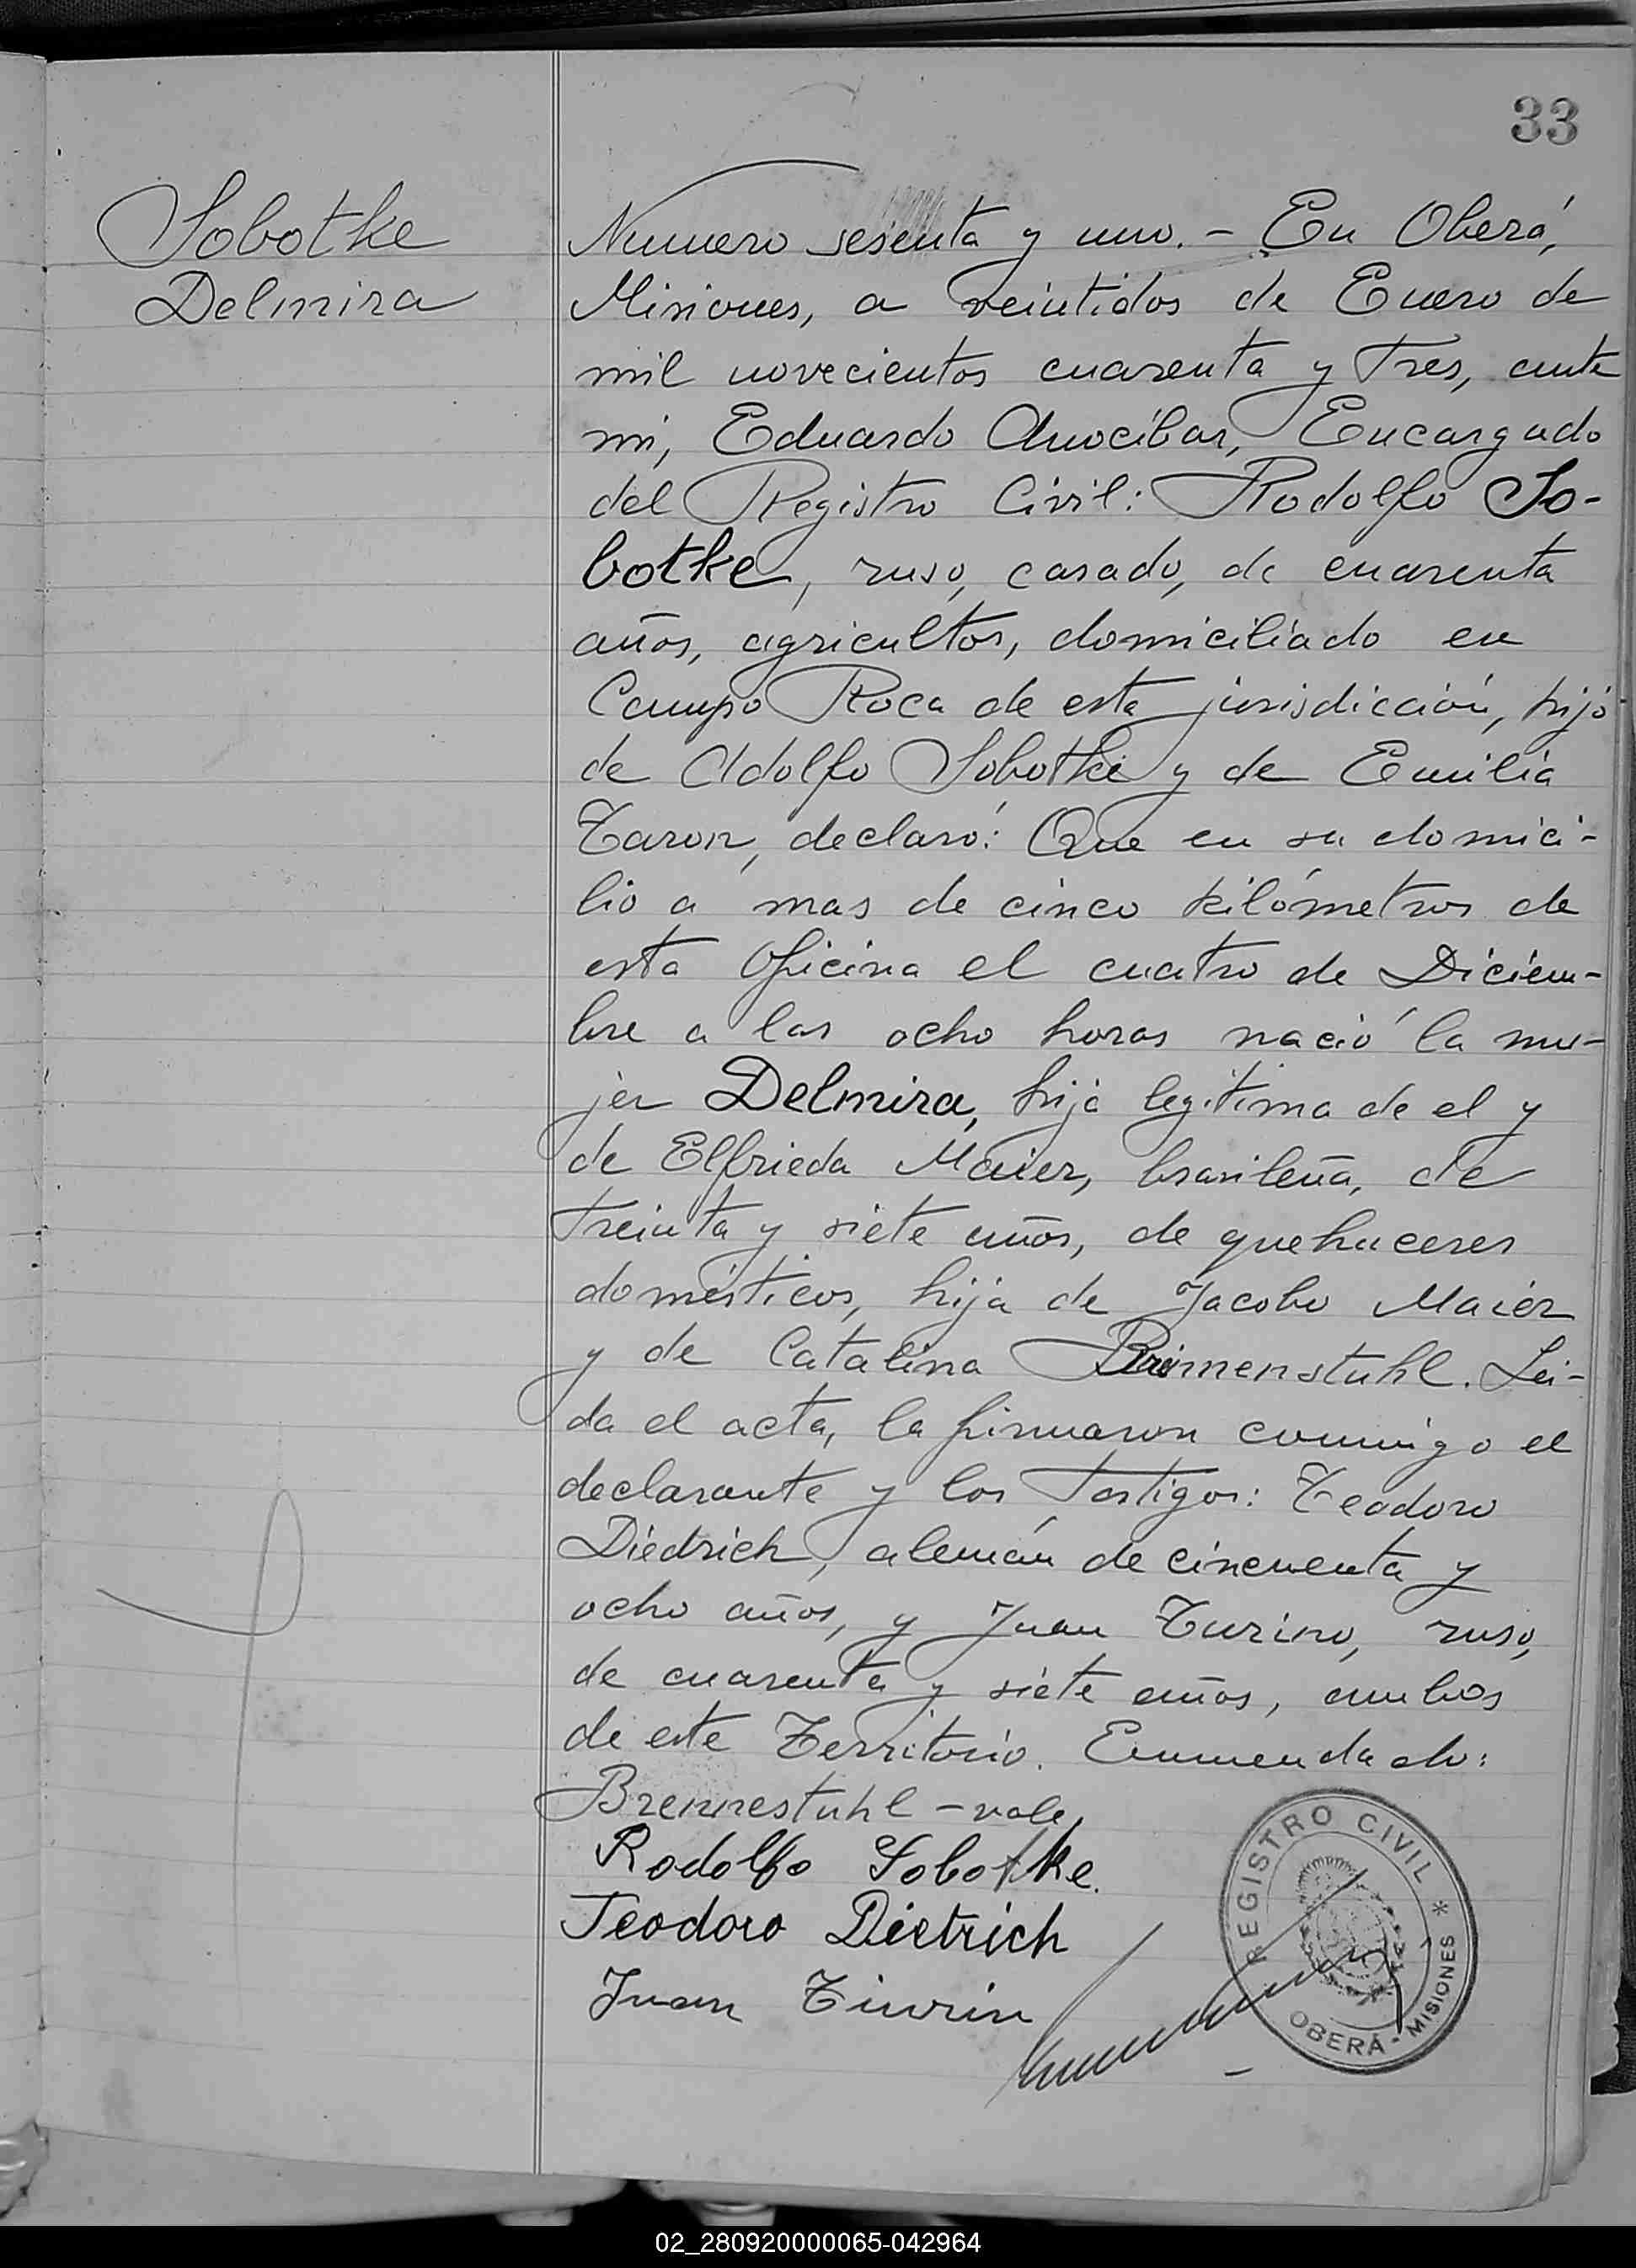 33
Sobotke
Delmira
Numero sesenta y uno. - En Oberá,
Misiones, a veintidos de Enero de
mil novecientos cuarenta y tres, ante
mi, Eduardo Anocíbar, Encargado
del Registro Civil: Rodolfo So-
botke, ruso, casado, de cuarenta
años, agricultor, domiciliado en
Campo Roca de esta jurisdicción, hijo
de Adolfo Sobotke y de Emilia
Taron, declaró: Que en su domici-
lio a mas de cinco kilómetros de
esta oficina el cuatro de Diciem-
bre a las ocho horas nació la mu-
jer Delmira, hija legitima de el y
de Elfrieda Maier, brasileña, de
treinta y siete años, de quehaceres
domésticos, hija de Jacobo Maier
y de Catalina Brimenstuhl. Lei-
da el acta, la firmaron conmigo el
declarante y los testigos: Teodoro
Diedrich, alemán de cincuenta y
ocho años, y Juan Turino, ruso,
de cuarenta y siete años, ambos
de este Territorio. Enmendado:
Brennestuhl - vale
Rodolfo Sobotke.
Teodoro Dietrich
Juan Tiurin
REGISTRO CIVIL *
OBERÁ - MISIONES
02_280920000065-042964